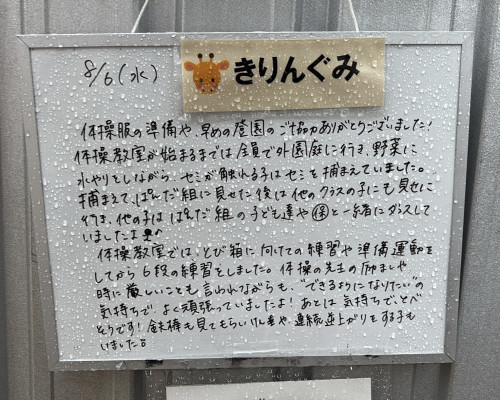 8/6(水)
きりんぐみ
体操服の準備や、早めの登園のご協力ありがとうございました!
体操教室が始まるまでは全員で外園庭に行き、野菜に
水やりとしながら、セミが触れる子はセミを捕まえていました。
捕まえて、ぱんだ組に見せた後は他のクラスの子にも見せに
行き、他の子はぱんだ組の子ども達や保と一緒にダンスして
いましたよ♪
体操教室では、とび箱に向けての練習や準備運動を
してから6段の練習をしました。体操の先生の励ましや
時に厳しいことも言われながらも、"できるようになりたい"の
気持ちで、よく頑張っていましたよ!あとは気持ちで、とべ
そうです!鉄棒も見てもらいけん垂や、連続逆上がりをする子も
いました。